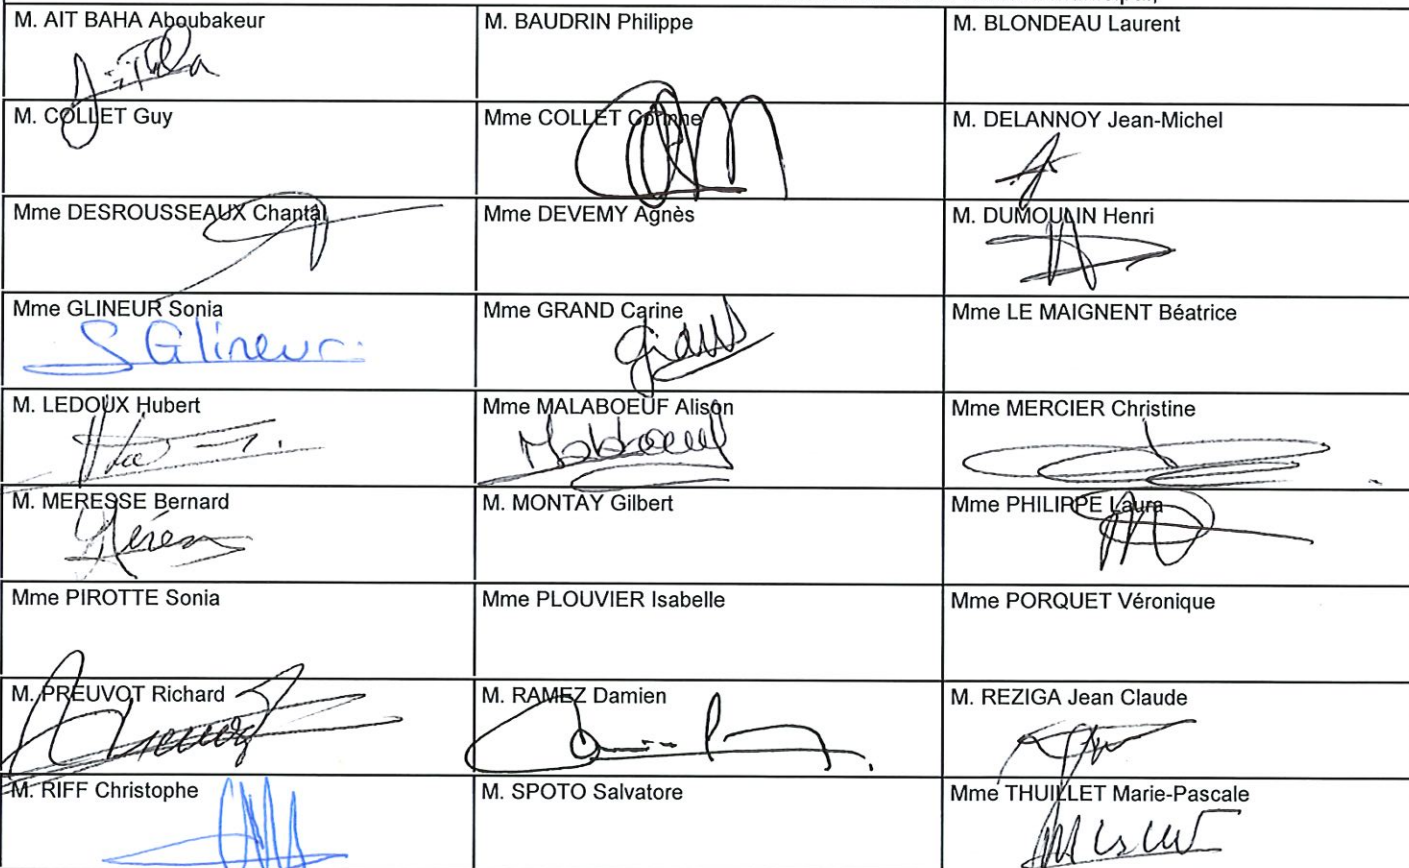 M. AIT BAHA Aboubakeur
M. BAUDRIN Philippe
M. BLONDEAU Laurent
M. COLLET Guy
Mme COLLET Corinne
M. DELANNOY Jean-Michel
Mme DESROUSSEAUX Chantal
Mme DEVEMY Agnès
M. DUMOULIN Henri
Mme GLINEUR Sonia
S Glineur
Mme GRAND Carine
Mme LE MAIGNENT Béatrice
M. LEDOUX Hubert
Mme MALABOEUF Alison
Malaboeuf
Mme MERCIER Christine
M. MERESSE Bernard
M. MONTAY Gilbert
Mme PHILIPPE Laura
Mme PIROTTE Sonia
Mme PLOUVIER Isabelle
Mme PORQUET Véronique
M. PREUVOT Richard
M. RAMEZ Damien
M. REZIGA Jean Claude
M. RIFF Christophe
M. SPOTO Salvatore
Mme THUILLET Marie-Pascale